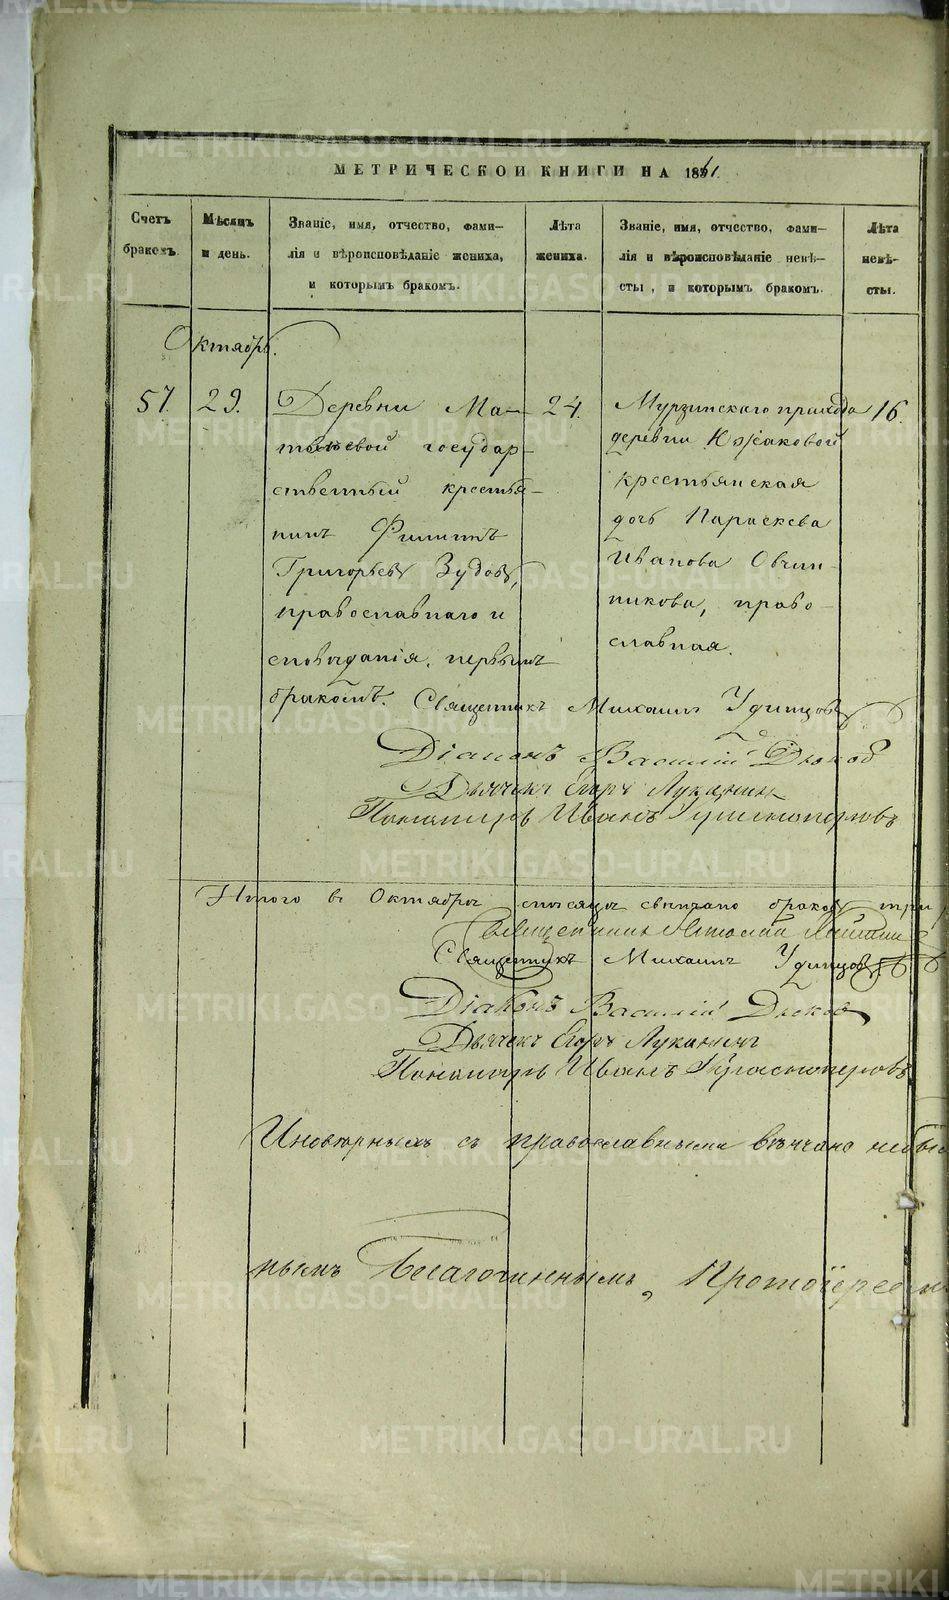 МЕТРИЧЕСКОЙ КНИГИ НА 1861.
Счетъ браковъ.
Мѣсяцъ и день.
Званіе, имя, отчество, фами-
лія и вѣроисповѣданіе жениха,
и которымъ бракомъ.
Лѣта
жениха.
Званіе, имя, отчество, фами-
лія и вѣроисповѣданіе невѣ-
сты, и которымъ бракомъ.
Лѣта
невѣ-
сты.
Октябрь.
57.
29.
Деревни Ма-
твѣевой государ-
ственный крестья-
нинъ Филиппъ
Григорьевъ Зудовъ,
православнаго и
сповѣданія, первымъ
бракомъ.
24.
Мурзинскаго прихода
деревни Южаковой
крестьянская
дочь Параскева
Иванова Овчин-
никова, право-
славная.
16.
Священникъ Михаилъ Удинцовъ.
Діаконъ Василій Дюковъ
Дьячекъ Егоръ Луканинъ
Пономарь Иванъ
Итого въ Октябрѣ мѣсяцѣ свѣнчано браковъ три
Священникъ
Священникъ Михаилъ Удинцовъ
Діаконъ Василій Дюковъ
Дьячекъ Егоръ Луканинъ
Пономарь Иванъ
Иновѣрныхъ съ православными вѣнчано небы
нымъ Благочиннымъ, Протоіереемъ
METRIKI.GASO-URAL.RU